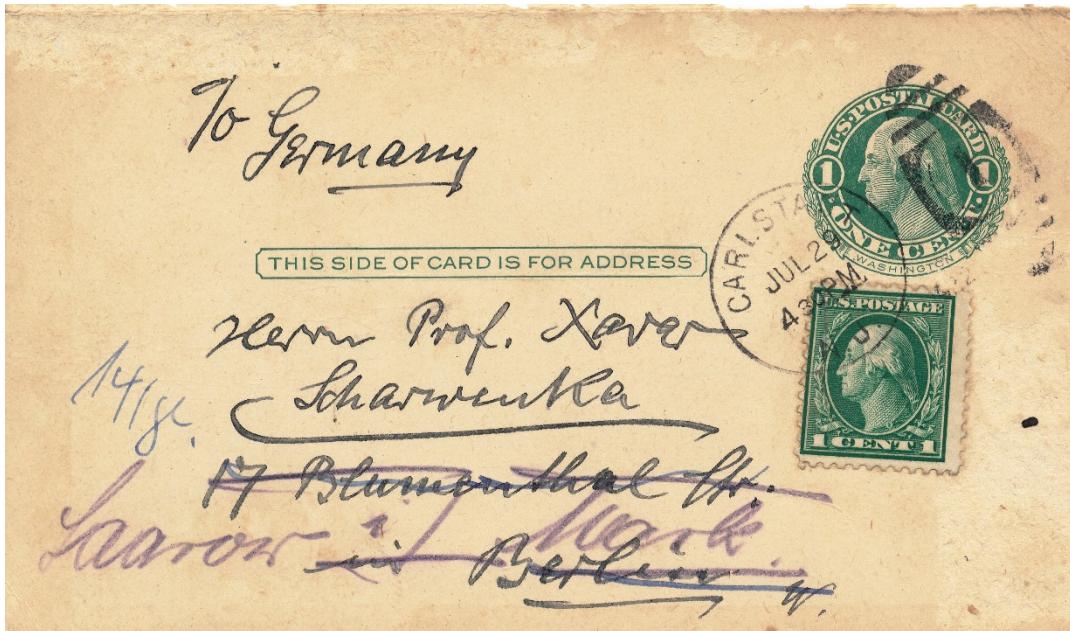 To Germany
U.S. POSTAL CARD
1 1
ONE CENT.
WASHINGTON
THIS SIDE OF CARD IS FOR ADDRESS
CARLSTADT
JUL 29
4 30 PM
N.J.
U.S. POSTAGE
1 CENT 1
Herrn Prof. Xaver
Scharwenka
17 Blumenthal Str.
Saarow i/ Mark.
in Berlin W.